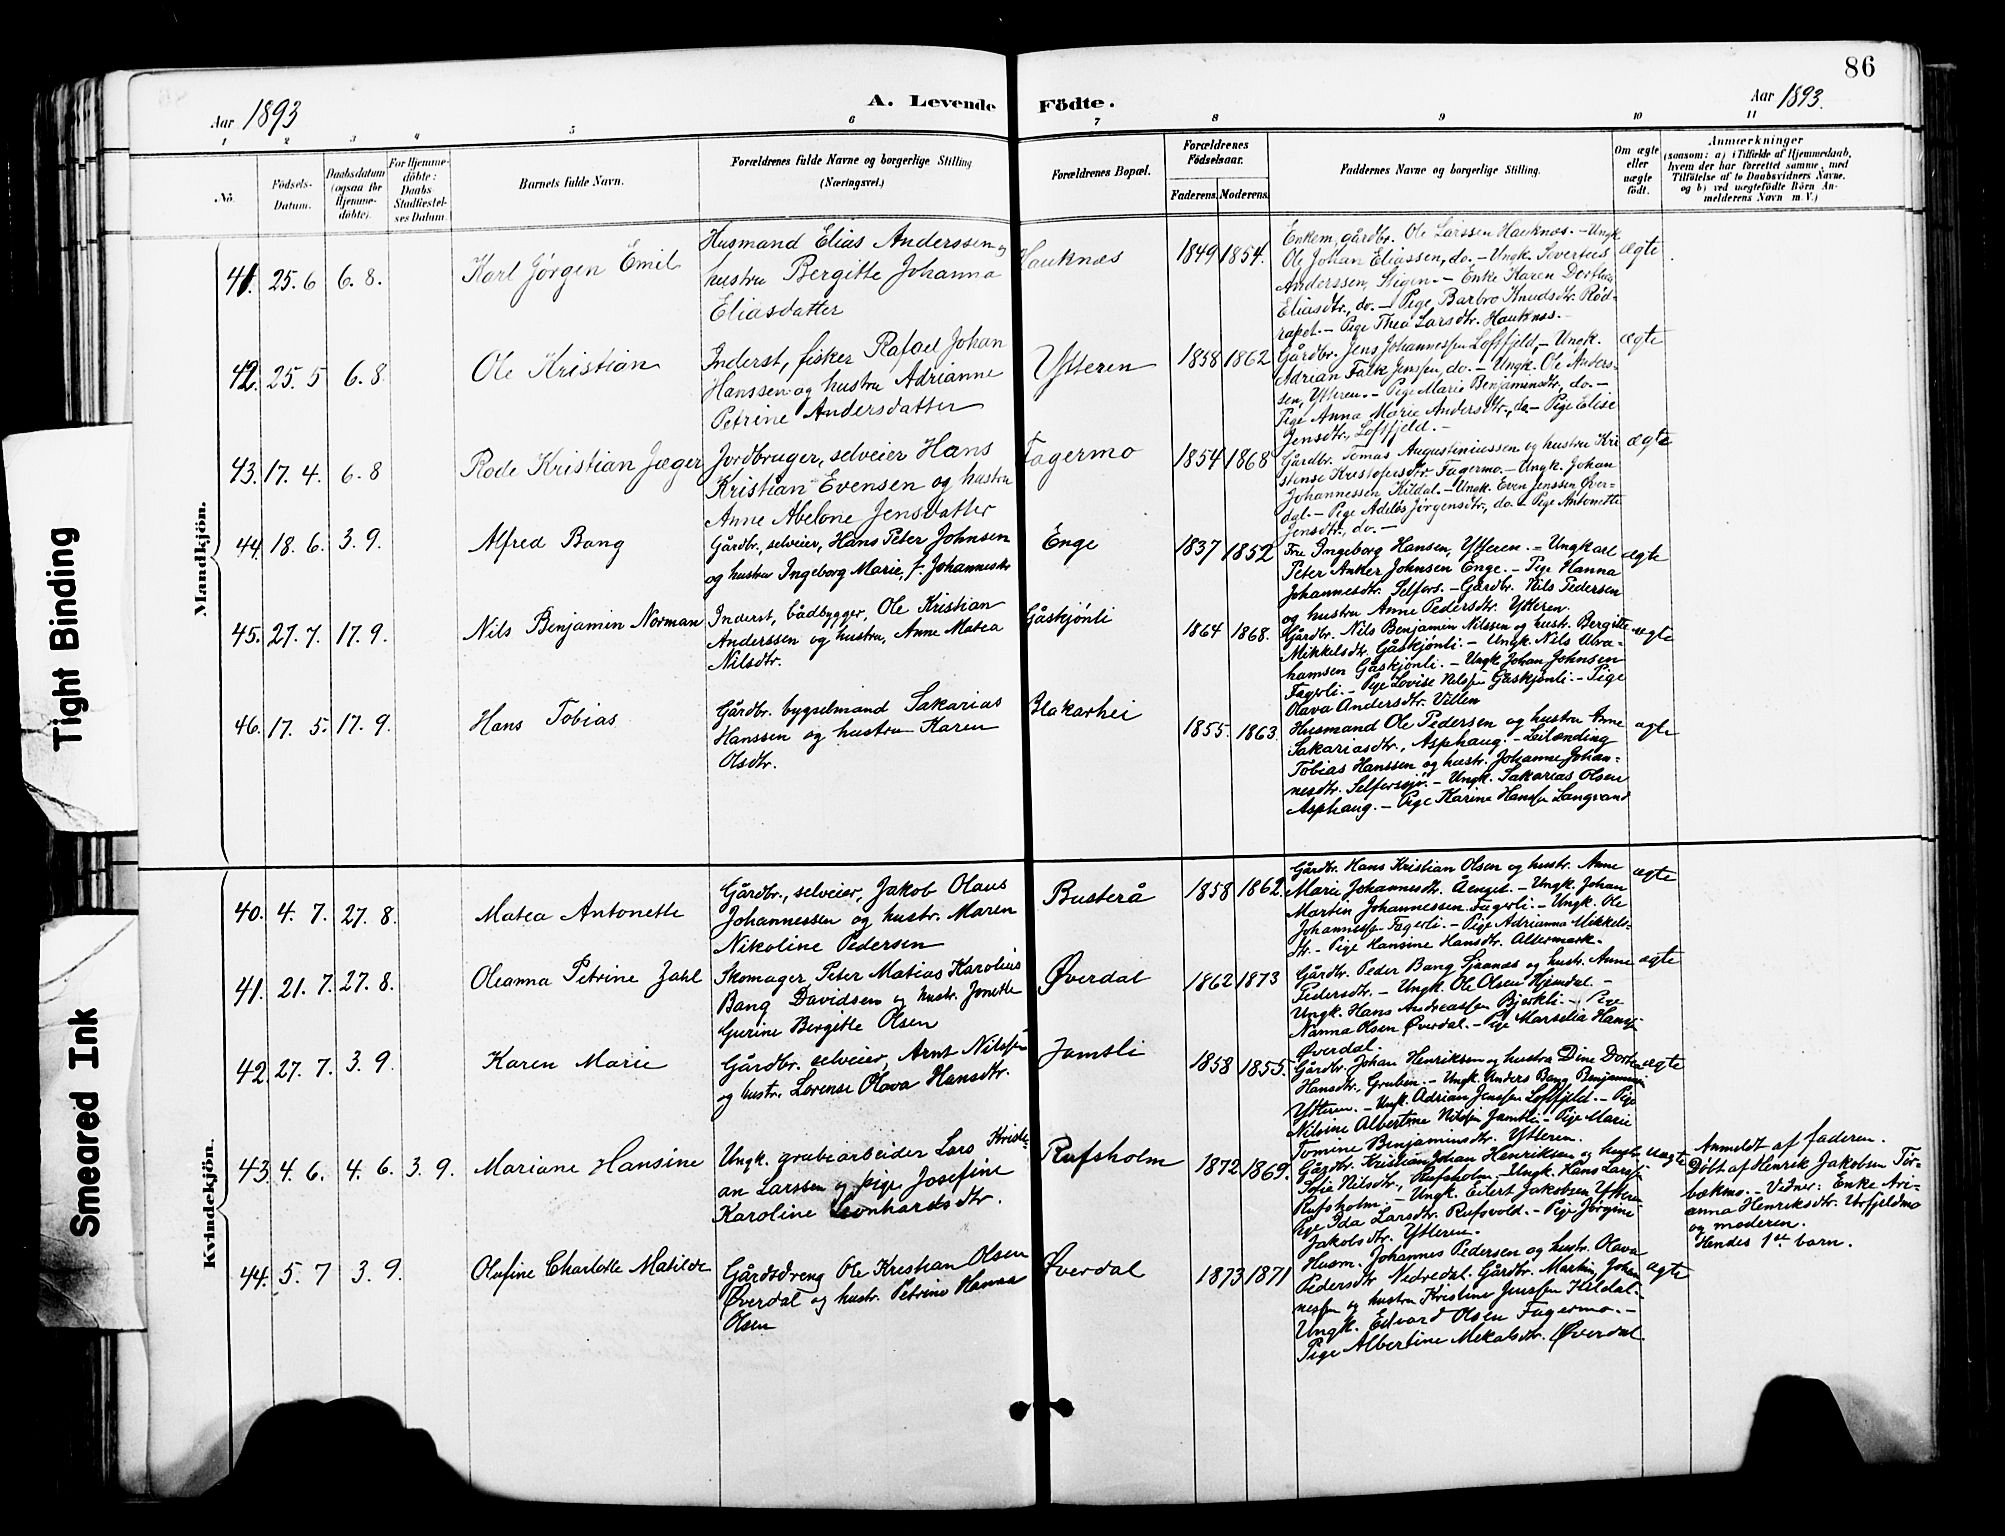 86
Aar 1893
A. Levende Födte.
Aar 1893.
1 2 3 4 5 6 7 8 9 10 11
No.
Födsels-Datum.
Daabsdatum (ogsaa for Hjemmedöbte).
For Hjemmedöbte: Daabs Stadfæstelses Datum.
Barnets fulde Navn.
Forældrenes fulde Navne og borgerlige Stilling (Næringsvei.)
Forældrenes Bopæl.
Forældrenes Födselsaar.
Faderens. Moderens.
Faddernes Navne og borgerlige Stilling.
Om ægte eller uægte födt.
Anmærkninger
(saasom: a) i Tilfælde af Hjemmedaab, hvem der har forrettet samme, med Tilföielse af to Daabsvidners Navne, og b) ved uægtefödte Börn Anmelderens Navn m. V.)
Mandkjön.
41. 25.6 6.8. Karl Jørgen Emil
Husmand Elias Anderssen og
hustru Bergitte Johanna
Eliasdatter
Hauknæs 1849 1854.
Enkem, gårdbr. Ole Larssen Hauknæs. - Ungk.
Ole Johan Eliassen, do. - Ungk. Severteus
Anderssen, Stigen. - Enke Karen Dorthea
Eliasdtr, do. - Pige Barbro Knudsdtr. Rød-
- Pige Thea Larsdtr. Hauknæs. -
ægte
42. 25.5 6.8 Ole Kristian
Inderst, fisker Rafael Johan
Hanssen og hustru Adrianne
Petrine Andersdatter
Ytteren 1858 1862
Gårdbr. Jens Johannessen Loftfjeld, - Ungk.
Adrian Falk Jenssen, do. - Ungk. Ole Anders-
sen, Ytteren. - Pige Marie Benjaminsdtr, do. -
Pige Anna Marie Andersdtr., do. - Pige Elise
Jensdtr., Loftfjeld. -
ægte
43. 17.4. 6.8 Rode Kristian Jæger
Jordbruger, selveier Hans
Kristian Evensen og hustru
Anne Abelone Jensdatter
Fagermo 1854 1868
Gårdbr. Tomas Augustinussen og hustru Kri
stense Kristofersdtr Fagermo. - Ungk. Johan
Johannessen Kildal. - Ungk. Even Jenssen Øver-
dal. - Pige Adelös Jørgensdtr., do. - Pige Antonette
Jensdtr., do. -
ægte
44. 18.6. 3.9. Alfred Bang
Gårdbr., selveier, Hans Peter Johnsen
og hustru Ingeborg Marie, f. Johannesdtr
Enge 1837 1852
Fru Ingeborg Hansen, Ytteren. - Ungkarl
Peter Anker Johnsen Enge. - Pige Hanna
Johannesdtr. Selfors. - Gårdbr. Nils Pedersen
og hustru Anne Pedersdtr. Ytteren.
ægte
45. 27.7. 17.9. Nils Benjamin Norman
Inderst, bådbygger, Ole Kristian
Anderssen og hustru, Anne Matea
Nilsdtr.
Gåskjønli 1864 1868.
Gårdbr. Nils Benjamin Nilssen og hustr. Bergitte
Mikkelsdtr. Gåskjønli. - Ungk. Nils Abra-
hamsen Gåskjønli. - Ungk Johan Johnsen
Fagerli. - Pige Lovise Nilsen Gåskjønli. - Pige
Olava Andersdtr. Villen
ægte
46. 17.5. 17.9. Hans Tobias
Gårdbr. bygselmand Sakarias
Hanssen og hustru Karen
Olsdtr.
Blakarhei 1855. 1863.
Husmand Ole Pedersen og hustru Anne
Sakariasdtr., Asphaug. - Leilænding
Tobias Hanssen og hustr. Johanne Johan-
nesdtr. - Ungk. Sakarias Olsen
Asphaug. - Pige Karine Hanssen Langvand
ægte
Kvindekjön.
40. 4.7. 27.8. Matea Antonette
Gårdbr., selveier, Jakob Olaus
Johannessen og hustr. Maren
Nikoline Pedersen
Busterå 1858 1862.
Gårdbr. Hans Kristian Olsen og hustr. Anne
Marie Johannesdtr. Åenget. - Ungk. Johan
Martin Johannessen Fagerli. - Ungk. Ole
Johannessen Fagerli. - Pige Adrianna Mikkels-
dtr. - Pige Hansine Hansdtr. Altermark. -
ægte
41. 21.7. 27.8. Oleanna Petrine Zahl
Skomager Peter Matias Karolius
Bang Davidsen og hustr. Jonette
Gurine Bergitte Olsen
Øverdal 1862 1873
Gårdbr. Peder Bang og hustr. Anne
Pedersdtr. - Ungk. Ole Olsen Hjemdal. -
Ungk. Hans Andreassen Bjerkli. - Pige
Nanna Olsen Øverdal. - Pige Marselia Hanss.
Øverdal.
ægte
42. 27.7. 3.9. Karen Marie
Gårdbr. selveier, Arnt Nilssen
og hustr. Lorense Olava Hansdtr.
Jamtli 1858 1855.
Gårdbr. Johan Henriksen og hustru Dine Dortea
Hansdtr., Gruben. - Ungk. Anders Bang Benjaminsen
Ytteren. - Ungk. Adrian Jenssen Loftfjeld. - Pige
Nilsine Albertine Nilssen Jamtli. - Pige Marie
Tomine Benjaminsdtr. Ytteren.
ægte
43. 4.6. 4.6. 3.9. Mariane Hansine
Ungk. grubearbeider Lars Kristi-
an Larssen og pige Josefine
Karoline Leonhardsdtr.
Rufsholm 1872 1869.
Gårdbr. Kristian Johan Henriksen og hustr.
Sofie Nilsdtr., Rufsholm. - Ungk. Hans Larss.
Rufsholm. - Ungk. Eilert Jakobsen Ytteren
Pige Ida Larsdtr. Rufsvold. - Pige Jørgine
Jakobsdtr. Ytteren.
uægte
Anmeldt af faderen.
Døbt af Henrik Jakobsen Tør-
bækmo. - Vidner: Enke Ari-
anna Henriksdtr. Urfjeldmo
og moderen.
Hendes 1ste barn.
44. 5.7 3.9. Olufine Charlotte Matilde
Gårdsdreng Ole Kristian Olsen
Øverdal og hustr. Petrine Hanna
Olsen
Øverdal 1873 1871
Husm. Johannes Pedersen og hustr. Olava
Pedersdtr Nedredal. Gårdbr. Martin Johan-
nessen og hustru Kristine Jenssen Kildal. -
Ungk. Edvard Olsen Fagermo. -
Pige Albertine Mekalsdtr. Øverdal.
ægte
Tight Binding
Smeared Ink